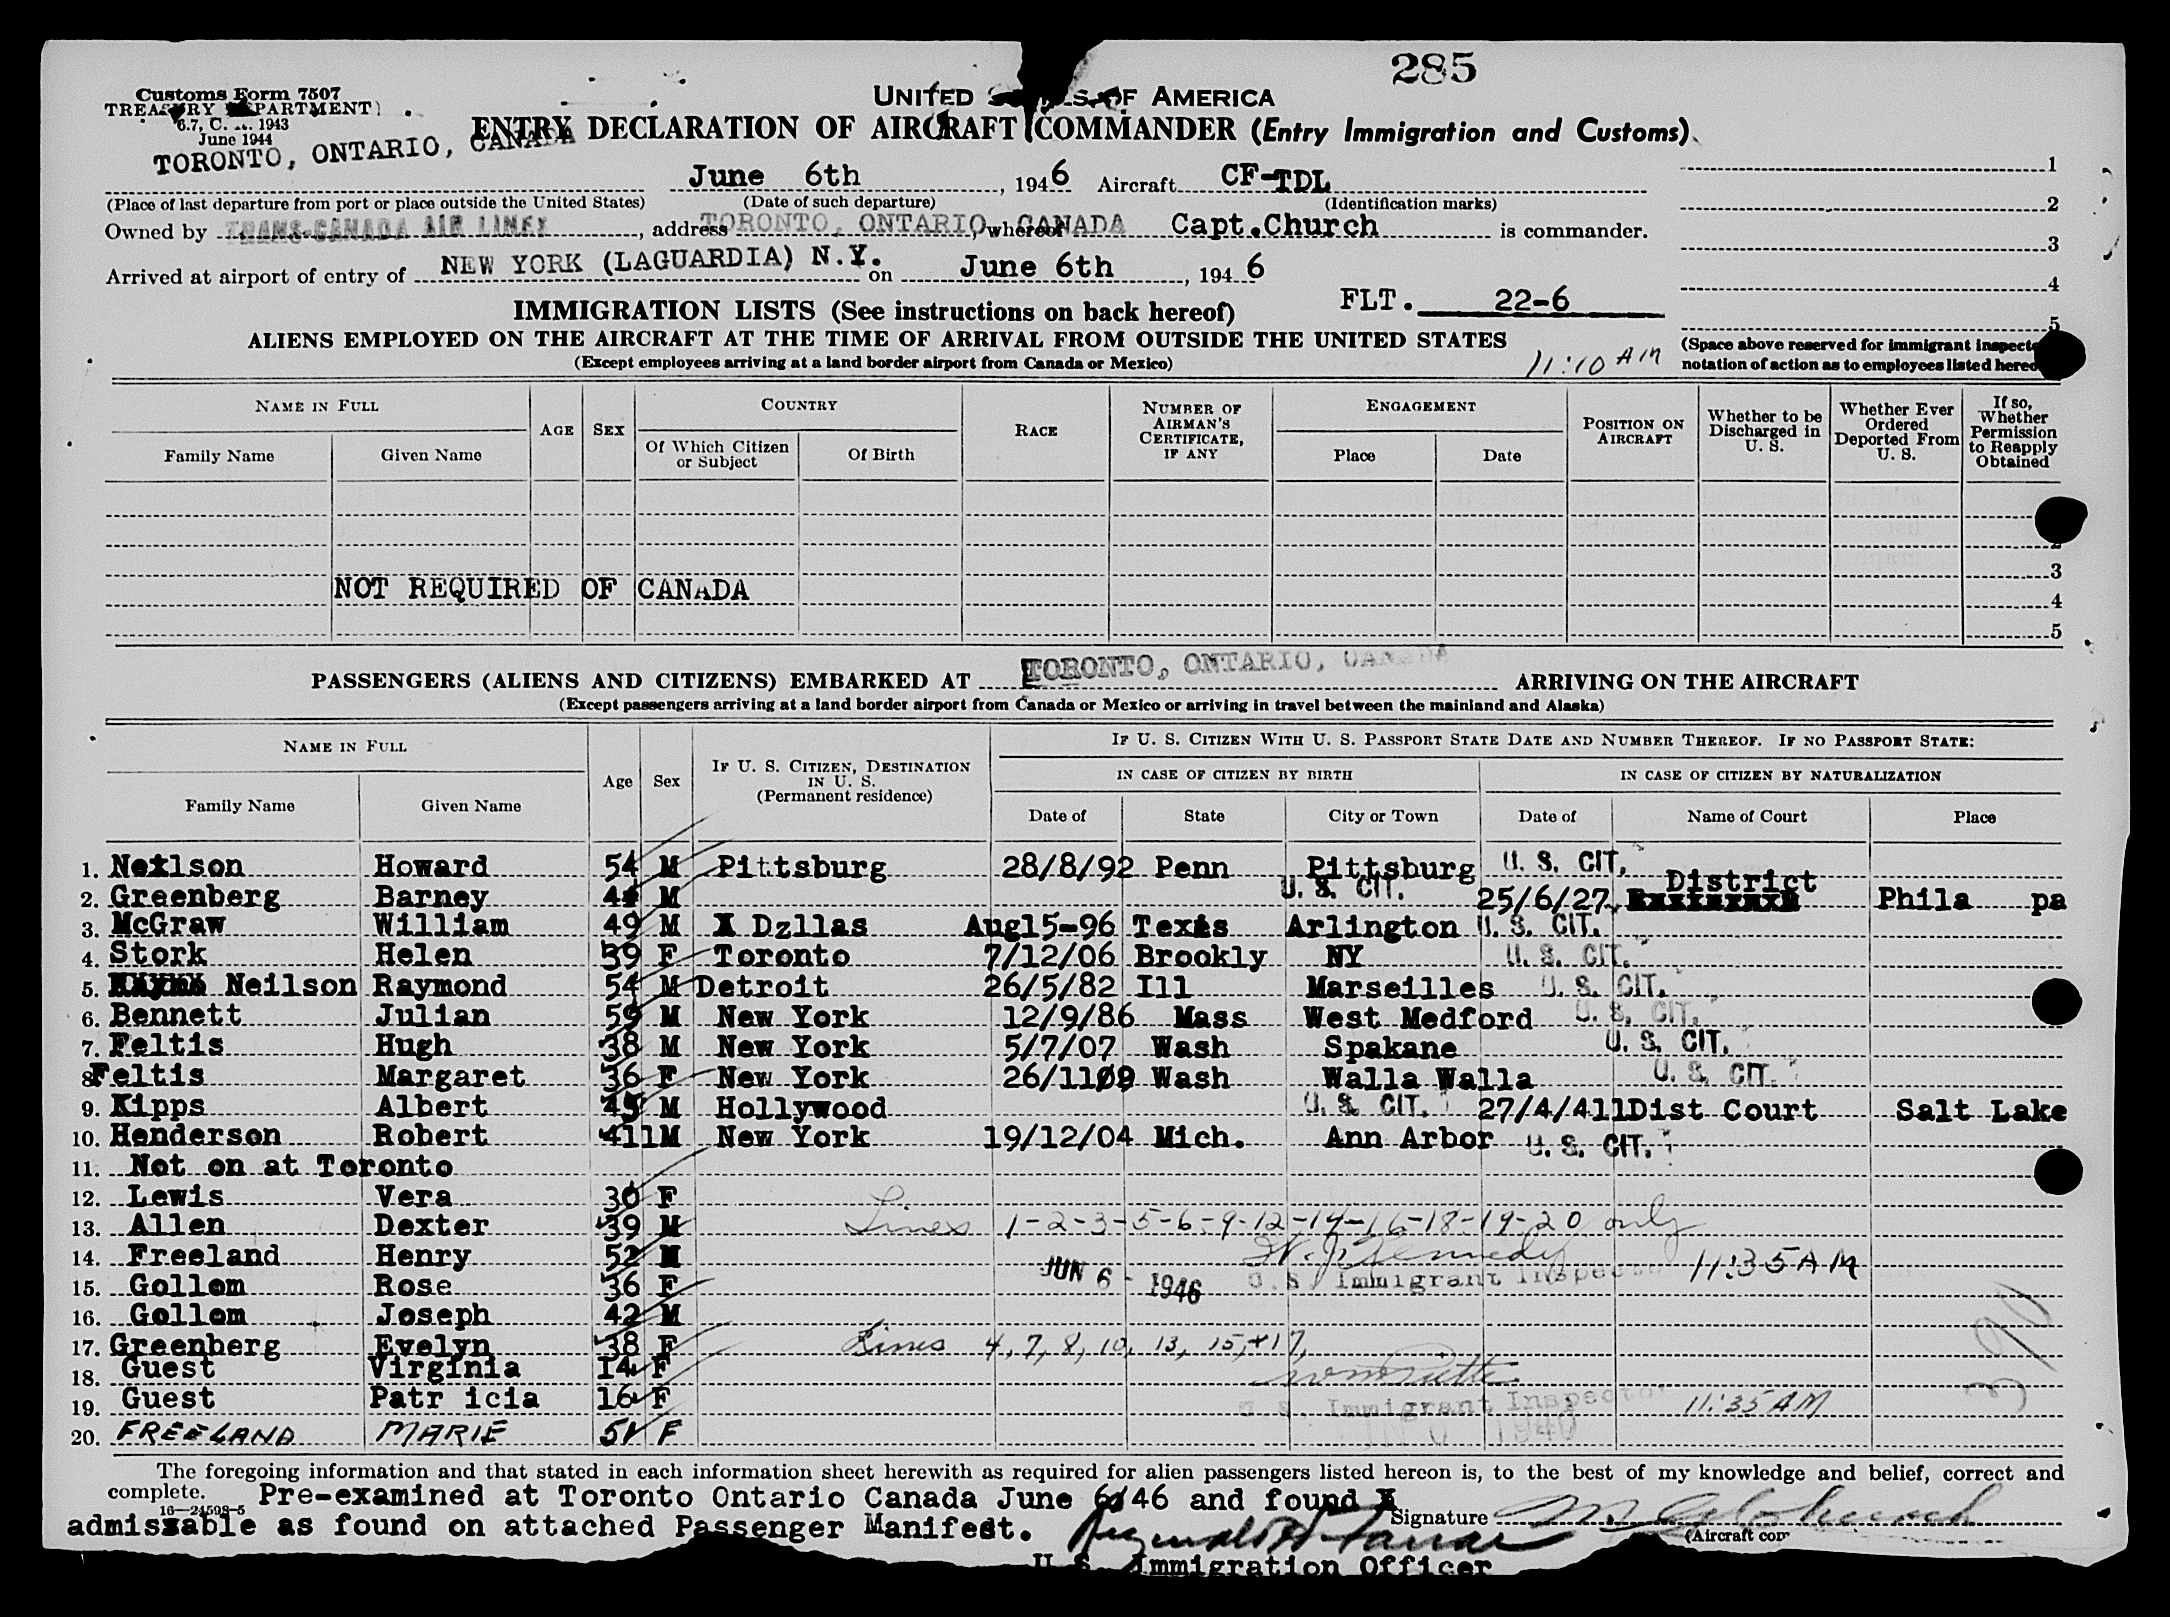 285
Customs Form 7507
TREASURY DEPARTMENT
6.7, C. 1943
June 1944
UNITED STATES OF AMERICA
ENTRY DECLARATION OF AIRCRAFT COMMANDER (Entry Immigration and Customs)
TORONTO, ONTARIO, CANADA June 6th, 1946 Aircraft CF-TDL 1
(Place of last departure from port or place outside the United States) (Date of such departure) (Identification marks) 2
Owned by TRANS-CANADA AIR LINES, address TORONTO, ONTARIO, CANADA whereof Capt.Church is commander. 3
Arrived at airport of entry of NEW YORK (LAGUARDIA) N.Y. on June 6th, 1946 4
IMMIGRATION LISTS (See instructions on back hereof) FLT. 22-6 5
ALIENS EMPLOYED ON THE AIRCRAFT AT THE TIME OF ARRIVAL FROM OUTSIDE THE UNITED STATES
(Except employees arriving at a land border airport from Canada or Mexico) 11:10 AM
(Space above reserved for immigrant
notation of action as to employees listed
NAME IN FULL AGE SEX COUNTRY RACE NUMBER OF AIRMAN'S CERTIFICATE, IF ANY ENGAGEMENT POSITION ON AIRCRAFT Whether to be Discharged in U. S. Whether Ever Ordered Deported From U. S. If so, Whether Permission to Reapply Obtained
Family Name Given Name Of Which Citizen or Subject Of Birth Place Date
3
NOT REQUIRED OF CANADA 4
5
PASSENGERS (ALIENS AND CITIZENS) EMBARKED AT TORONTO, ONTARIO, CANADA ARRIVING ON THE AIRCRAFT
(Except passengers arriving at a land border airport from Canada or Mexico or arriving in travel between the mainland and Alaska)
NAME IN FULL Age Sex IF U. S. CITIZEN, DESTINATION IN U. S. (Permanent residence) IF U. S. CITIZEN WITH U. S. PASSPORT STATE DATE AND NUMBER THEREOF. IF NO PASSPORT STATE:
IN CASE OF CITIZEN BY BIRTH IN CASE OF CITIZEN BY NATURALIZATION
Family Name Given Name Date of State City or Town Date of Name of Court Place
1. Neilson Howard 54 M Pittsburg 28/8/92 Penn Pittsburg U. S. CIT.
2. Greenberg Barney 44 M U. S. CIT. 25/6/27 District Phila pa
3. McGraw William 49 M X Dzllas Aug15-96 Texas Arlington U. S. CIT.
4. Stork Helen 39 F Toronto 7/12/06 Brookly NY U. S. CIT.
5. Neilson Raymond 54 M Detroit 26/5/82 Ill Marseilles U. S. CIT.
6. Bennett Julian 59 M New York 12/9/86 Mass West Medford U. S. CIT.
7. Feltis Hugh 38 M New York 5/7/07 Wash Spakane U. S. CIT.
8. Feltis Margaret 36 F New York 26/1109 Wash Walla Walla U. S. CIT.
9. Kipps Albert 45 M Hollywood U. S. CIT. 27/4/411Dist Court Salt Lake
10. Henderson Robert 411M New York 19/12/04 Mich. Ann Arbor U. S. CIT.
11. Not on at Toronto
12. Lewis Vera 30 F
13. Allen Dexter 39 M Lines 1-2-3-5-6-9-12-14-16-18-19-20 only
14. Freeland Henry 52 M W. J. Kennedy 11:35 AM
15. Gollom Rose 36 F JUN 6 - 1946 U.S. Immigrant Inspector
16. Gollom Joseph 42 M
17. Greenberg Evelyn 38 F Lines 4, 7, 8, 10, 13, 15, +17,
18. Guest Virginia 14 F
19. Guest Patr icia 16 F U. S. Immigrant Inspector 11:35 AM
20. FREELAND MARIE 51 F
The foregoing information and that stated in each information sheet herewith as required for alien passengers listed hereon is, to the best of my knowledge and belief, correct and
complete. Pre-examined at Toronto Ontario Canada June 6/46 and found
16—24598-5
admissable as found on attached Passenger Manifest. Signature
(Aircraft
U. S. Immigration Officer